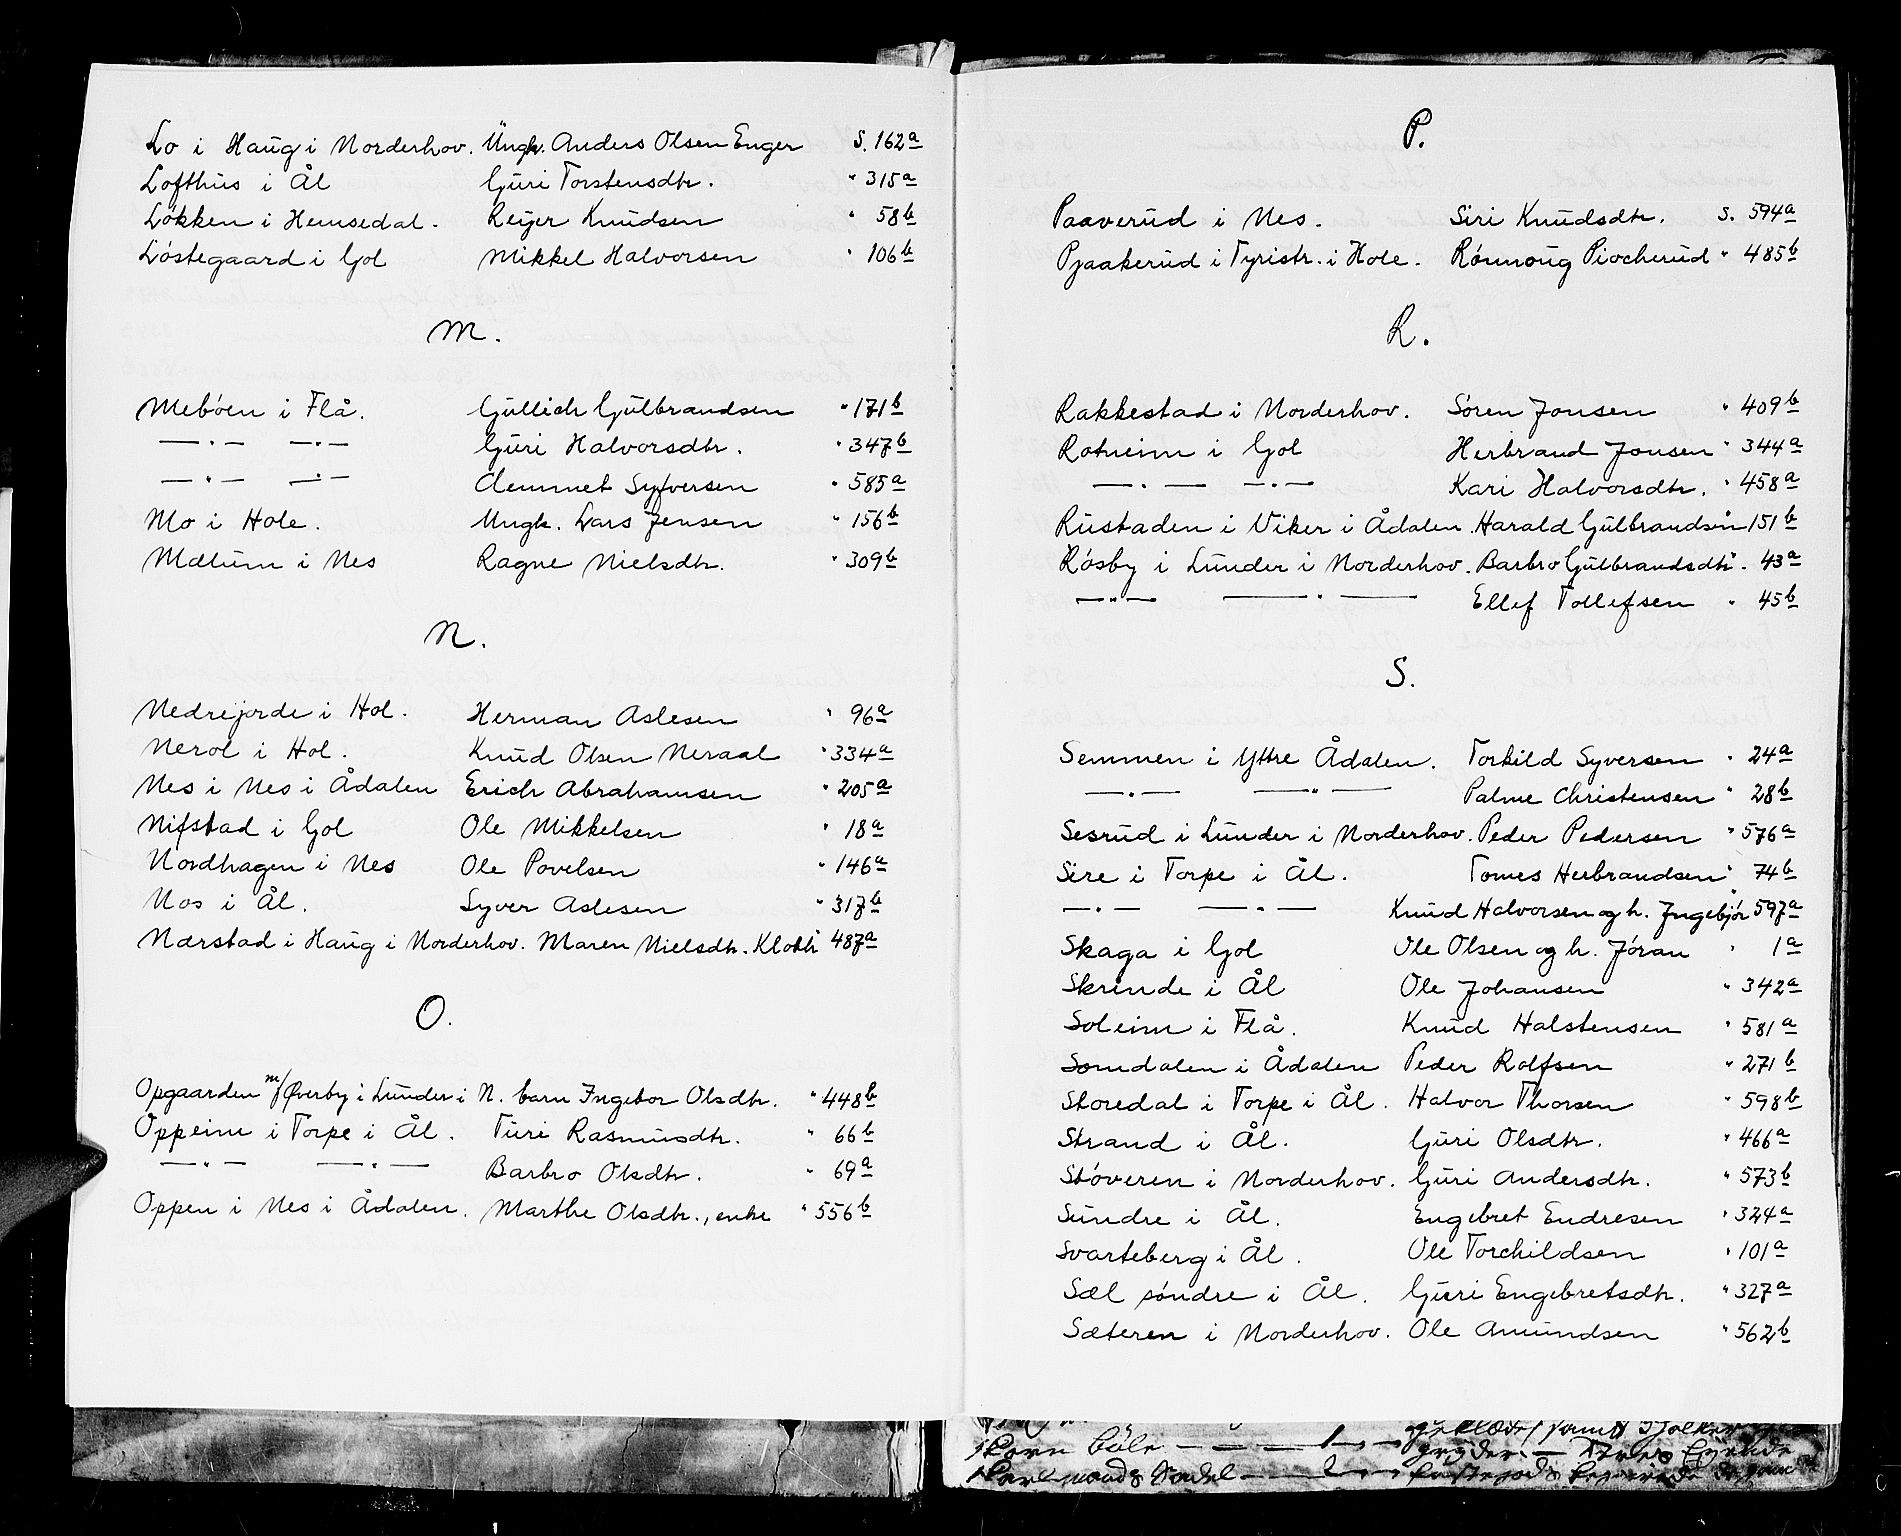 Lo i Haug i Norderhov. Ungk. Anders Olsen Enger S. 162a
Lofthus i Ål Guri Torstensdtr. " 315a
Løkken i Hemsedal. Reijer Knudsen " 58b
Løstegaard i Gol Mikkel Halvorsen " 106b
M.
Mebøen i Flå. Gullich Gulbrandsen " 171b
—"— —"— Guri Halvorsdtr. " 347b
—"— —"— Clemmet Syfversen " 585a
Mo i Hole. Ungk. Lars Jensen " 156b
Mælum i Nes Ragne Nielsdtr. " 309b
N.
Nedrejorde i Hol. Herman Aslesen " 96a
Nerol i Hol. Knud Olsen Neraal " 334a
Nes i Nes i Ådalen Erich Abrahamsen " 205a
Nifstad i Gol Ole Mikkelsen " 18a
Nordhagen i Nes Ole Povelsen " 146a
Nos i Ål. Syver Aslesen " 317b
Nærstad i Haug i Norderhov. Maren Nielsdtr. Kloth " 487a
O.
Opgaarden m/Øverby i Lunder i N. barn Ingebor Olsdtr. " 448b
Oppeim i Torpe i Ål. Turi Rasmusdtr. " 66b
—"— —"— Barbro Olsdtr. " 69a
Oppen i Nes i Ådalen. Marthe Olsdtr., enke " 556b
P.
Paaverud i Nes. Siri Knudsdtr. S. 594a
Pjaakerud i Tyristr. i Hole. Rønnoug Piocherud " 485b
R.
Rakkestad i Norderhov. Søren Jonsen " 409b
Rotneim i Gol Herbrand Jonsen " 344a
—"— —"— Kari Halvorsdtr. " 458a
Rustaden i Viker i Ådalen. Harald Gulbrandsen " 151b
Røsby i Lunder i Norderhov. Barbro Gulbrandsdtr. " 43a
—"— —"— Ellef Tollefsen " 45b
S.
Semmen i Yttre Ådalen. Torkild Syversen " 24a
—"— —"— Palme Christensen " 28b
Sesrud i Lunder i Norderhov. Peder Pedersen " 576a
Sire i Torpe i Ål. Tomes Herbrandsen " 74b
—"— —"— Knud Halvorsen og h. Ingebjør " 597a
Skaga i Gol Ole Olsen og h. Jøran " 1a
Skrinde i Ål Ole Johansen " 342a
Soleim i Flå. Knud Halstensen " 581a
Somdalen i Ådalen Peder Rolfsen " 271b
Storedal i Torpe i Ål. Halvor Thorsen " 598b
Strand i Ål. Guri Olsdtr. " 466a
Støveren i Norderhov. Guri Andersdtr. " 573b
Sundre i Ål. Engebret Endresen " 324a
Svarteberg i Ål. Ole Torchildsen " 101a
Sæl søndre i Ål. Guri Engebretsdtr. " 327a
Sæteren i Norderhov. Ole Amundsen " 562b